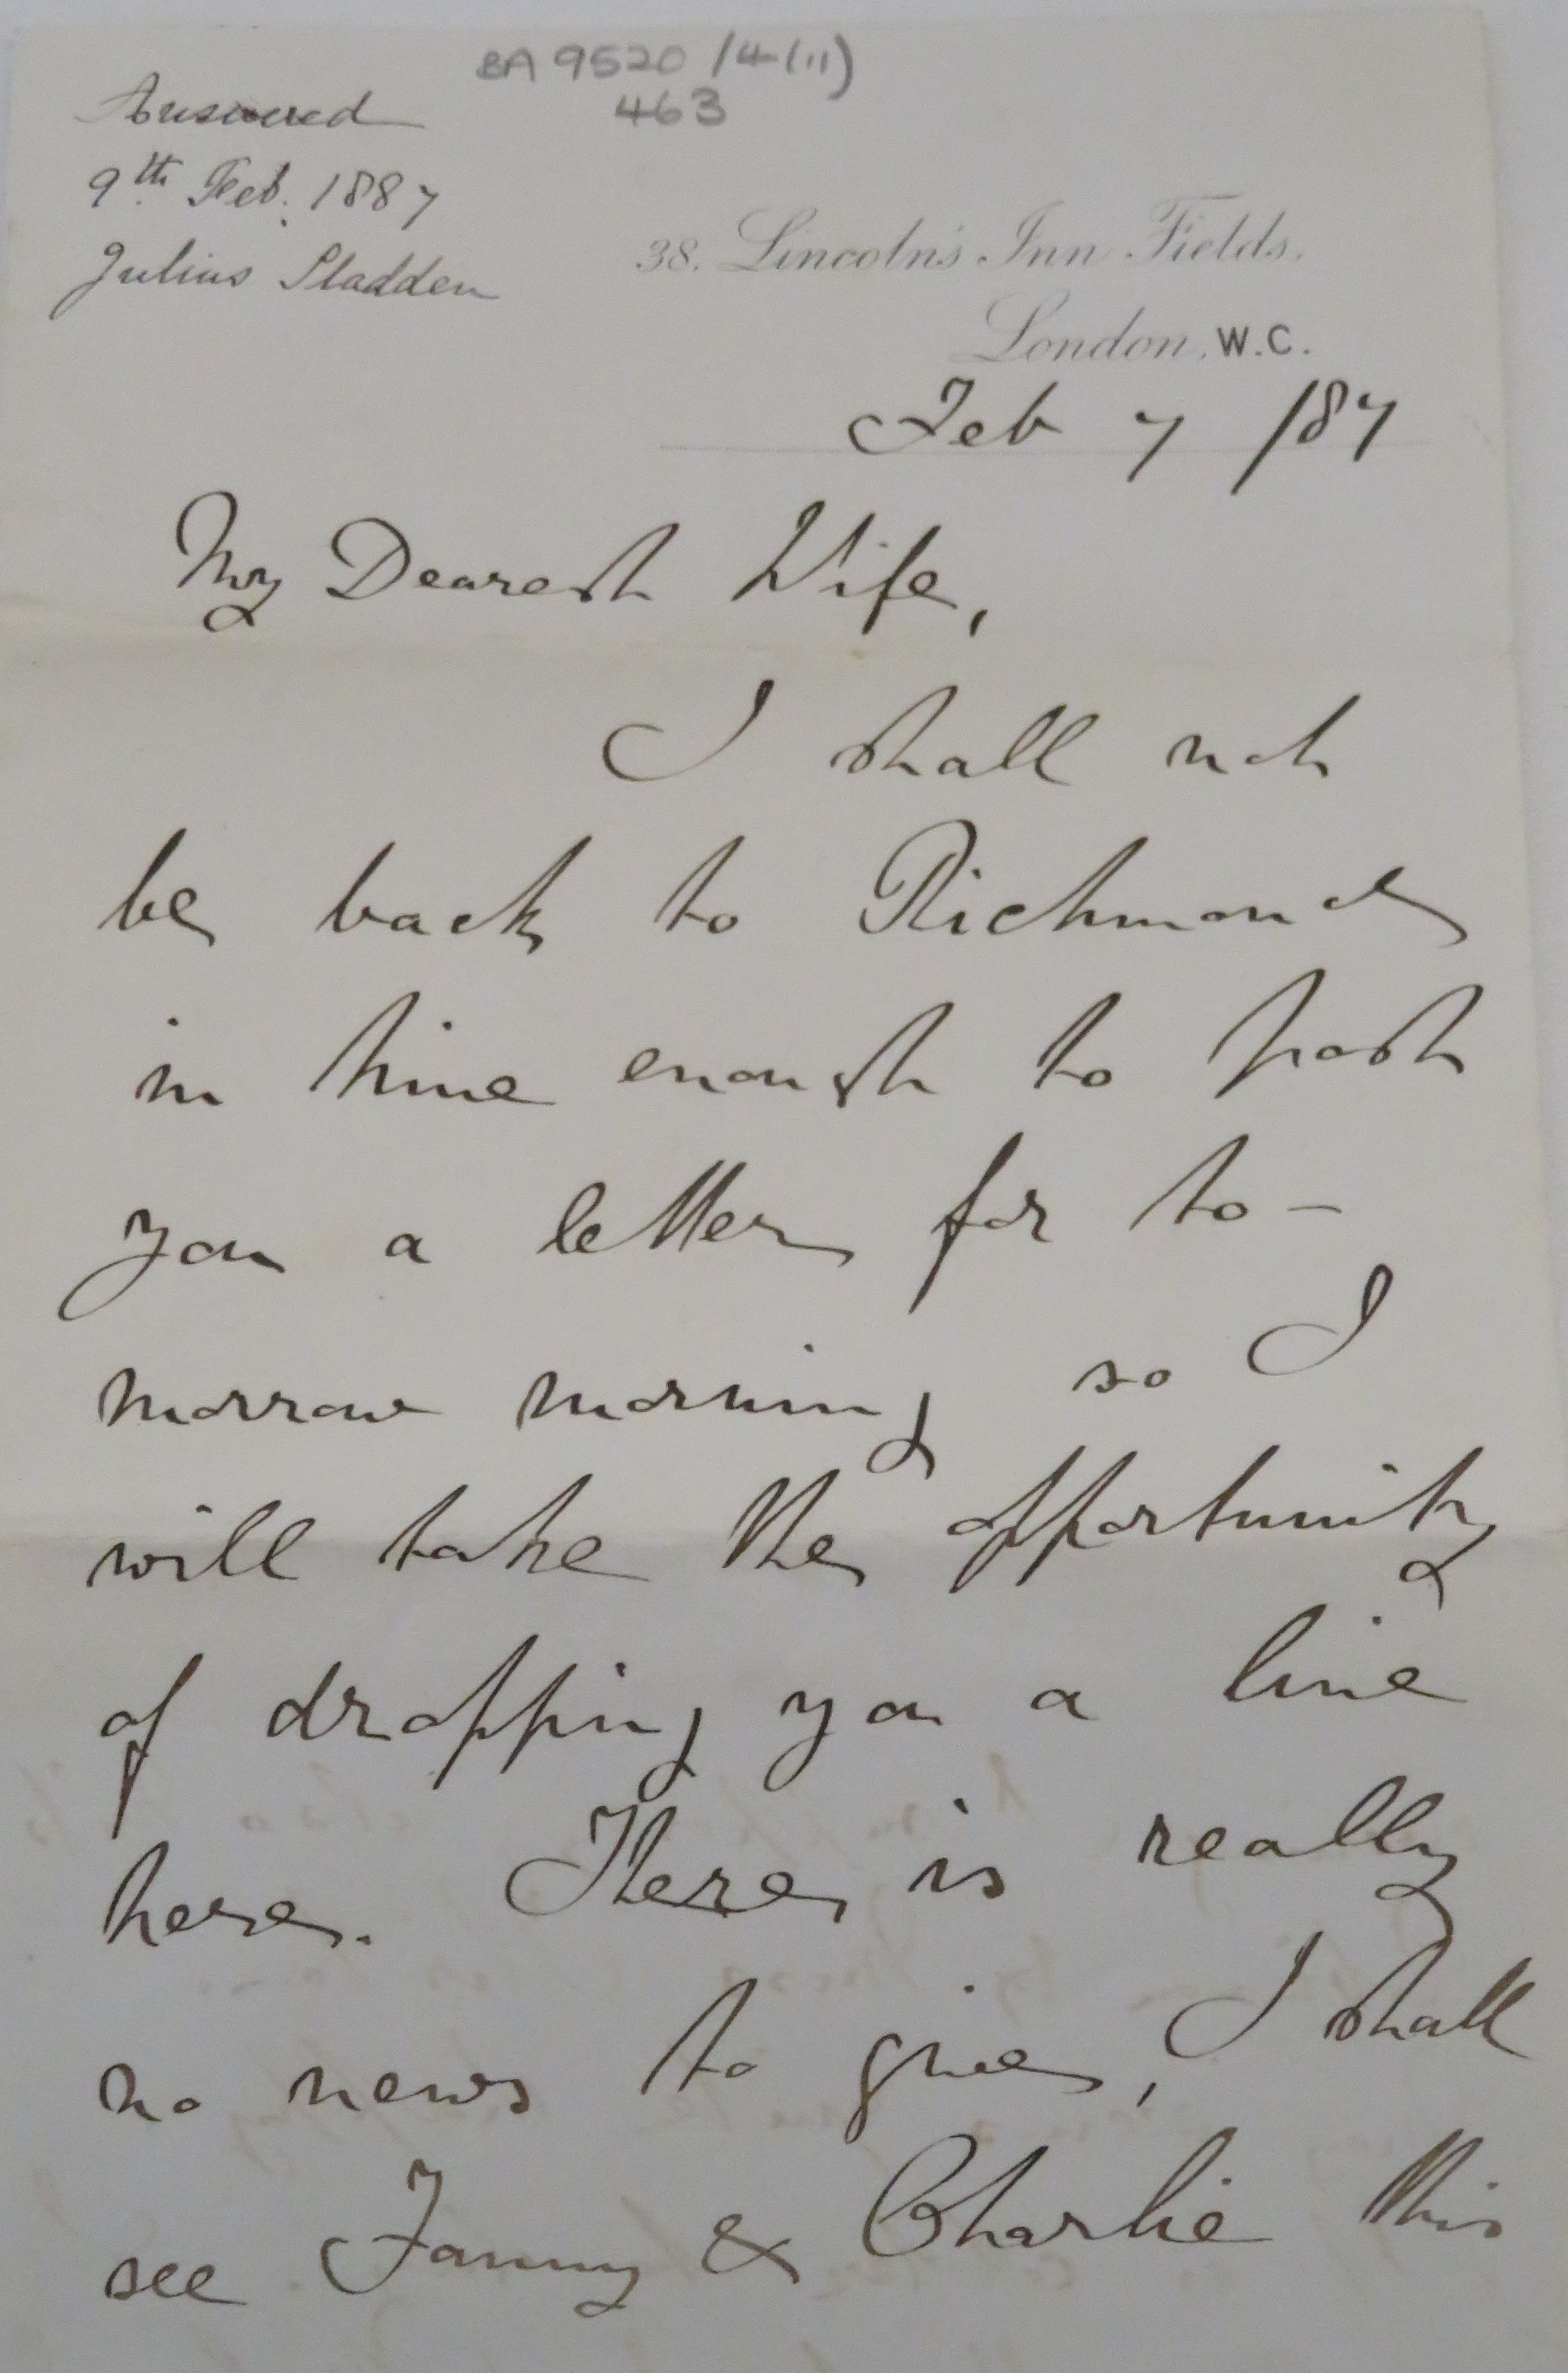 BA 9520 /4-(11)
463
Answered
9th Feb. 1887
Julius Sladden
38. Lincoln's Inn Fields.
London. W.C.
Feb 7 /87
My Dearest Wife,
I shall not
be back to Richmond
in time enough to post
you a letter for to-
morrow morning so I
will take the opportunity
of dropping you a line
here. There is really
no news to give, I shall
see Fanny & Charlie this